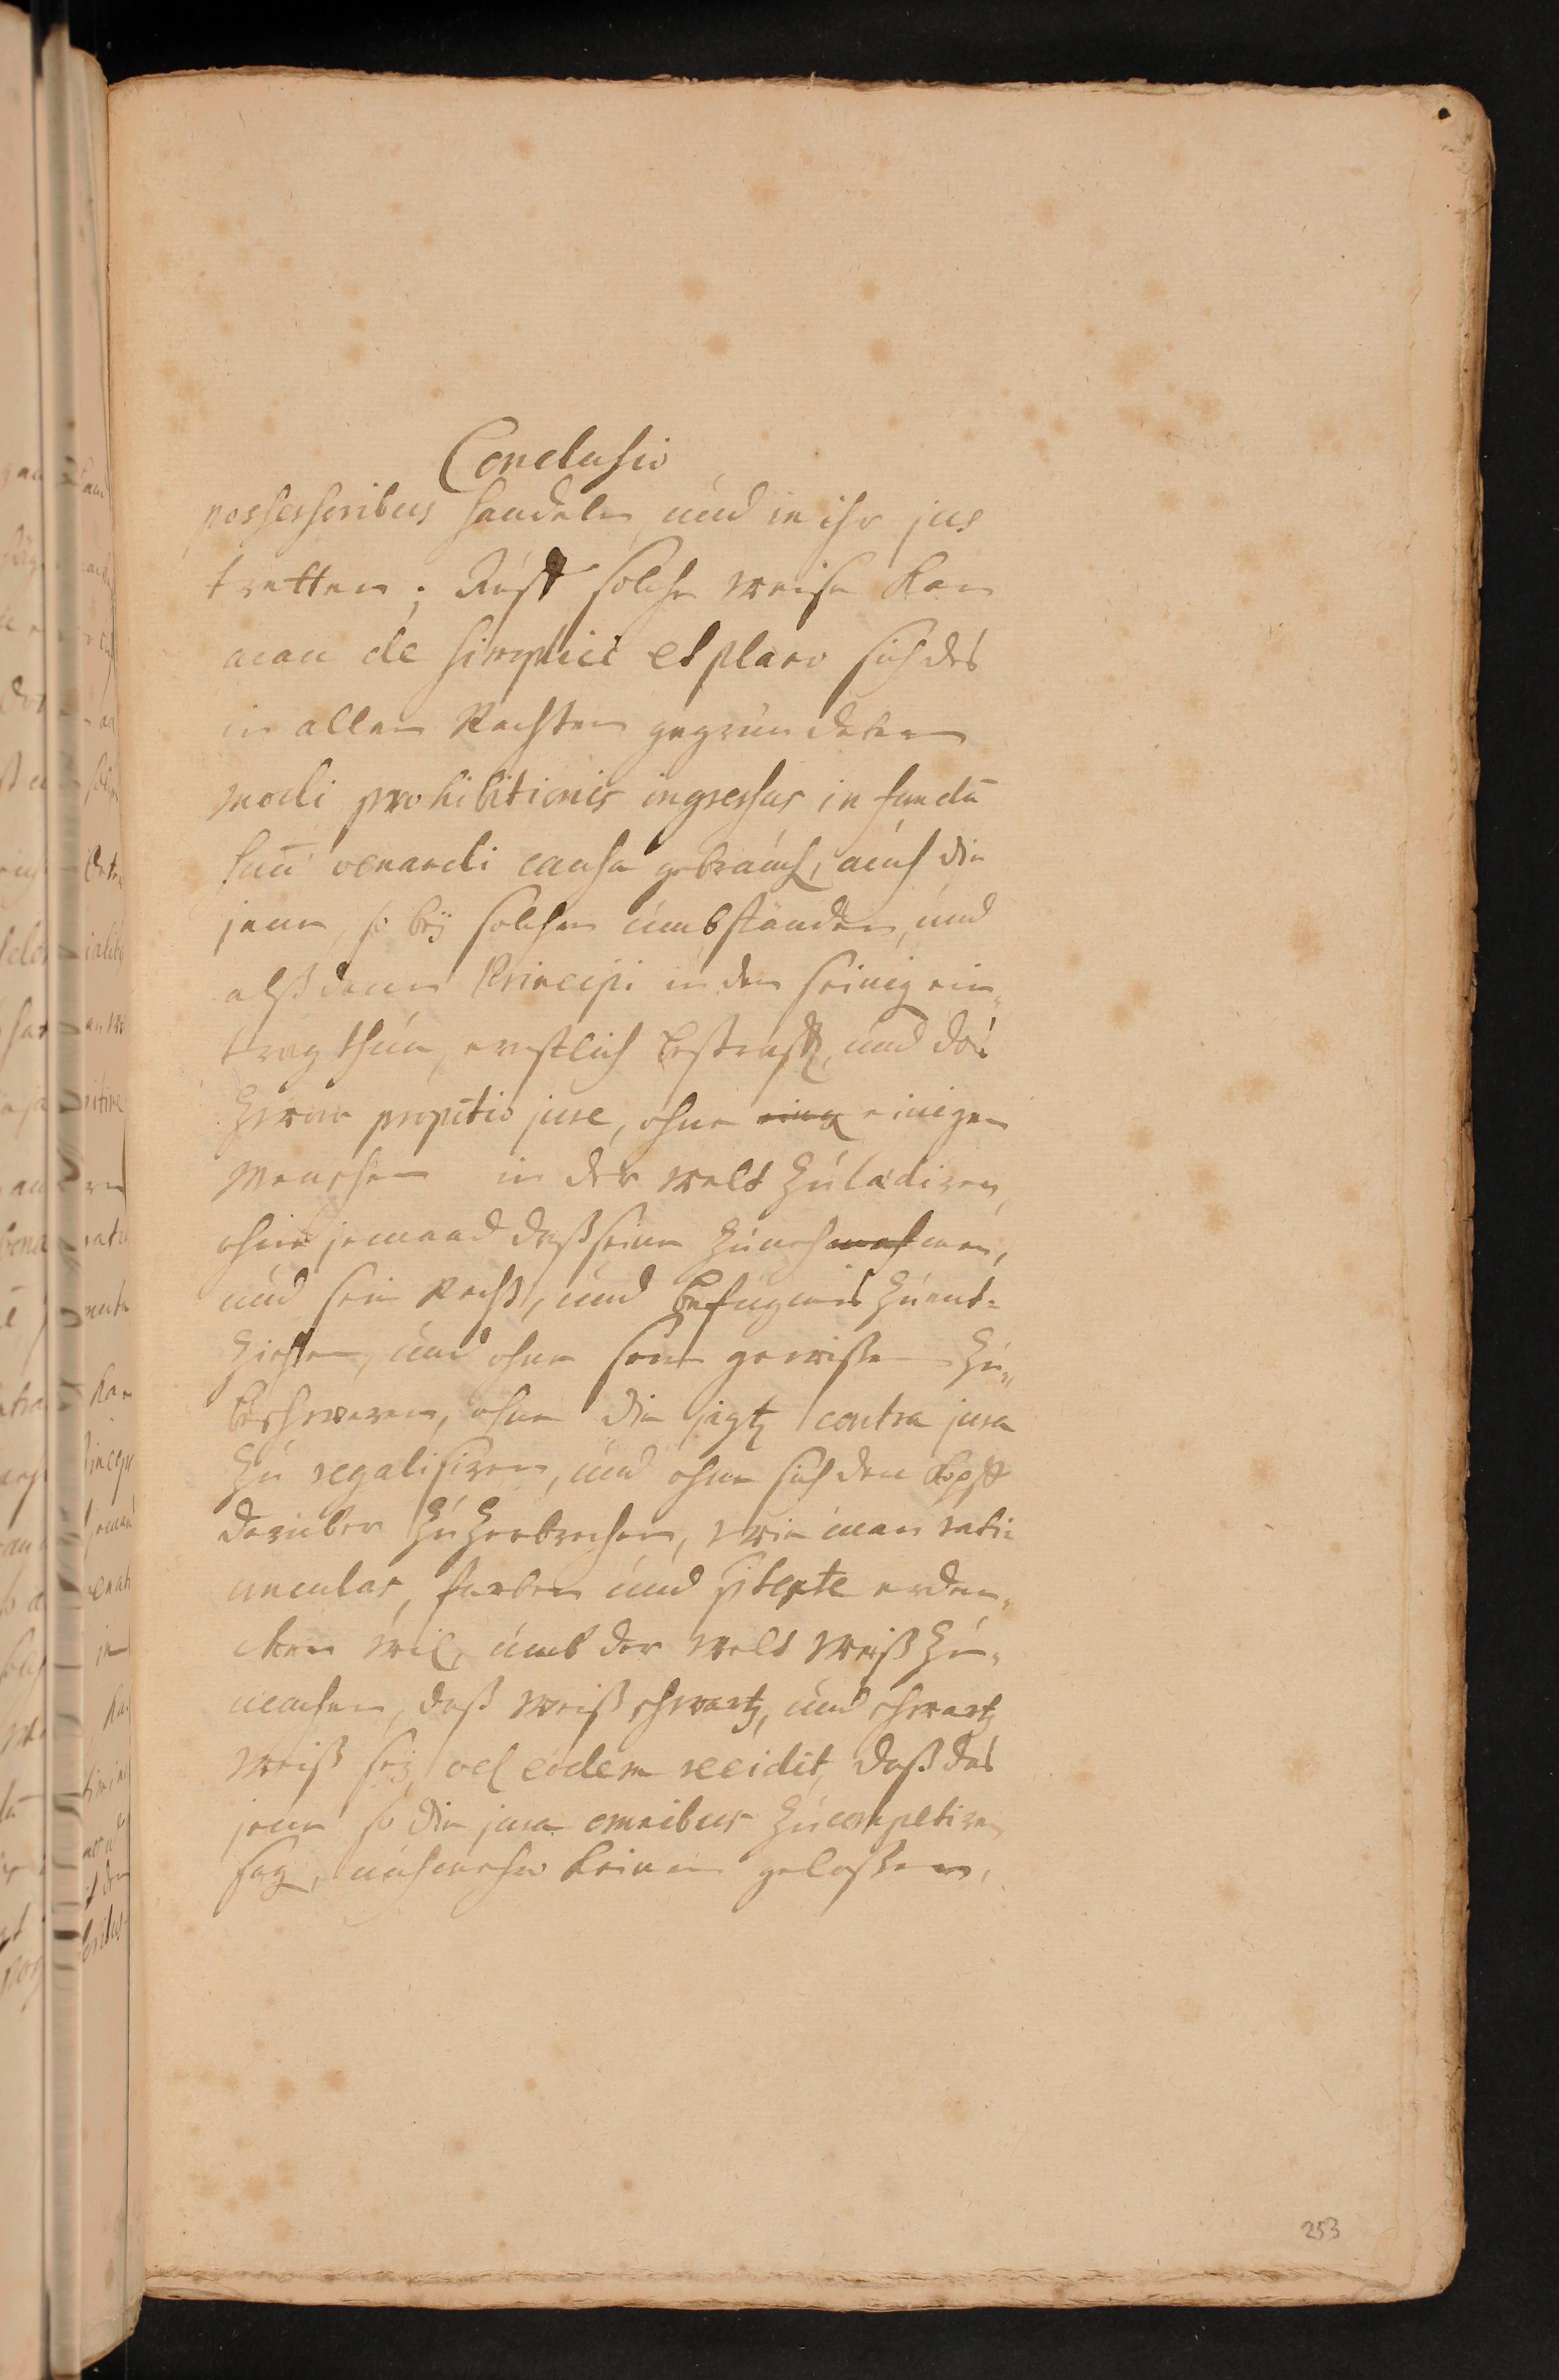 Conclusio
possessoribus handeln, und in ihr jus
tretten; Auff solche weise kan
man de simplici et plano sich des
in allen Rechten gegründeten
modi prohibitionis ingressus in fundū
suū venandi causa gebrauch, auch die
jene, so beÿ solchen umbständen, und
alßdann Principi in den seinig ein„
trag thun, ernstlich bestraff, und das
Zwar propitio jure, ohne einig einigen
Menschen in der welt Zulædiren,
ohne jemand deß seine Zunehmen,
und sein Recht, und befugnis Zuent=
Ziehen, und ohne sein gewissen Zu„
beschweren, ohne die jagtz contra jura
Zu regalisiren, und ohne sich den Kopff
darüber Zu Zerbrechen, wie man ratiu
unculas, farben und erden„
cken wil, umb der welt weiß Zu„
machen, daß weiß schwartz, und schwartz
weiß seÿ, vel eodem recidit, daß das
jene so die jura omnibus Zucompetiren
sag, nuhmehr keinem gelassen,
253